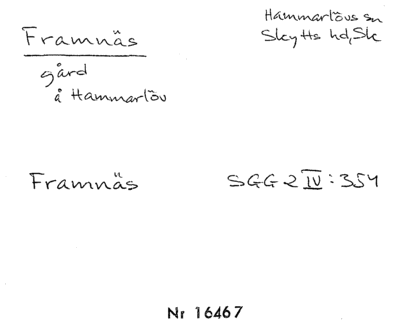 Framnäs
Hammarlövs sn
Skytts hd, Sk
gård
å Hammarlöv
Framnäs
SGG 2 IV : 354
Nr 16467